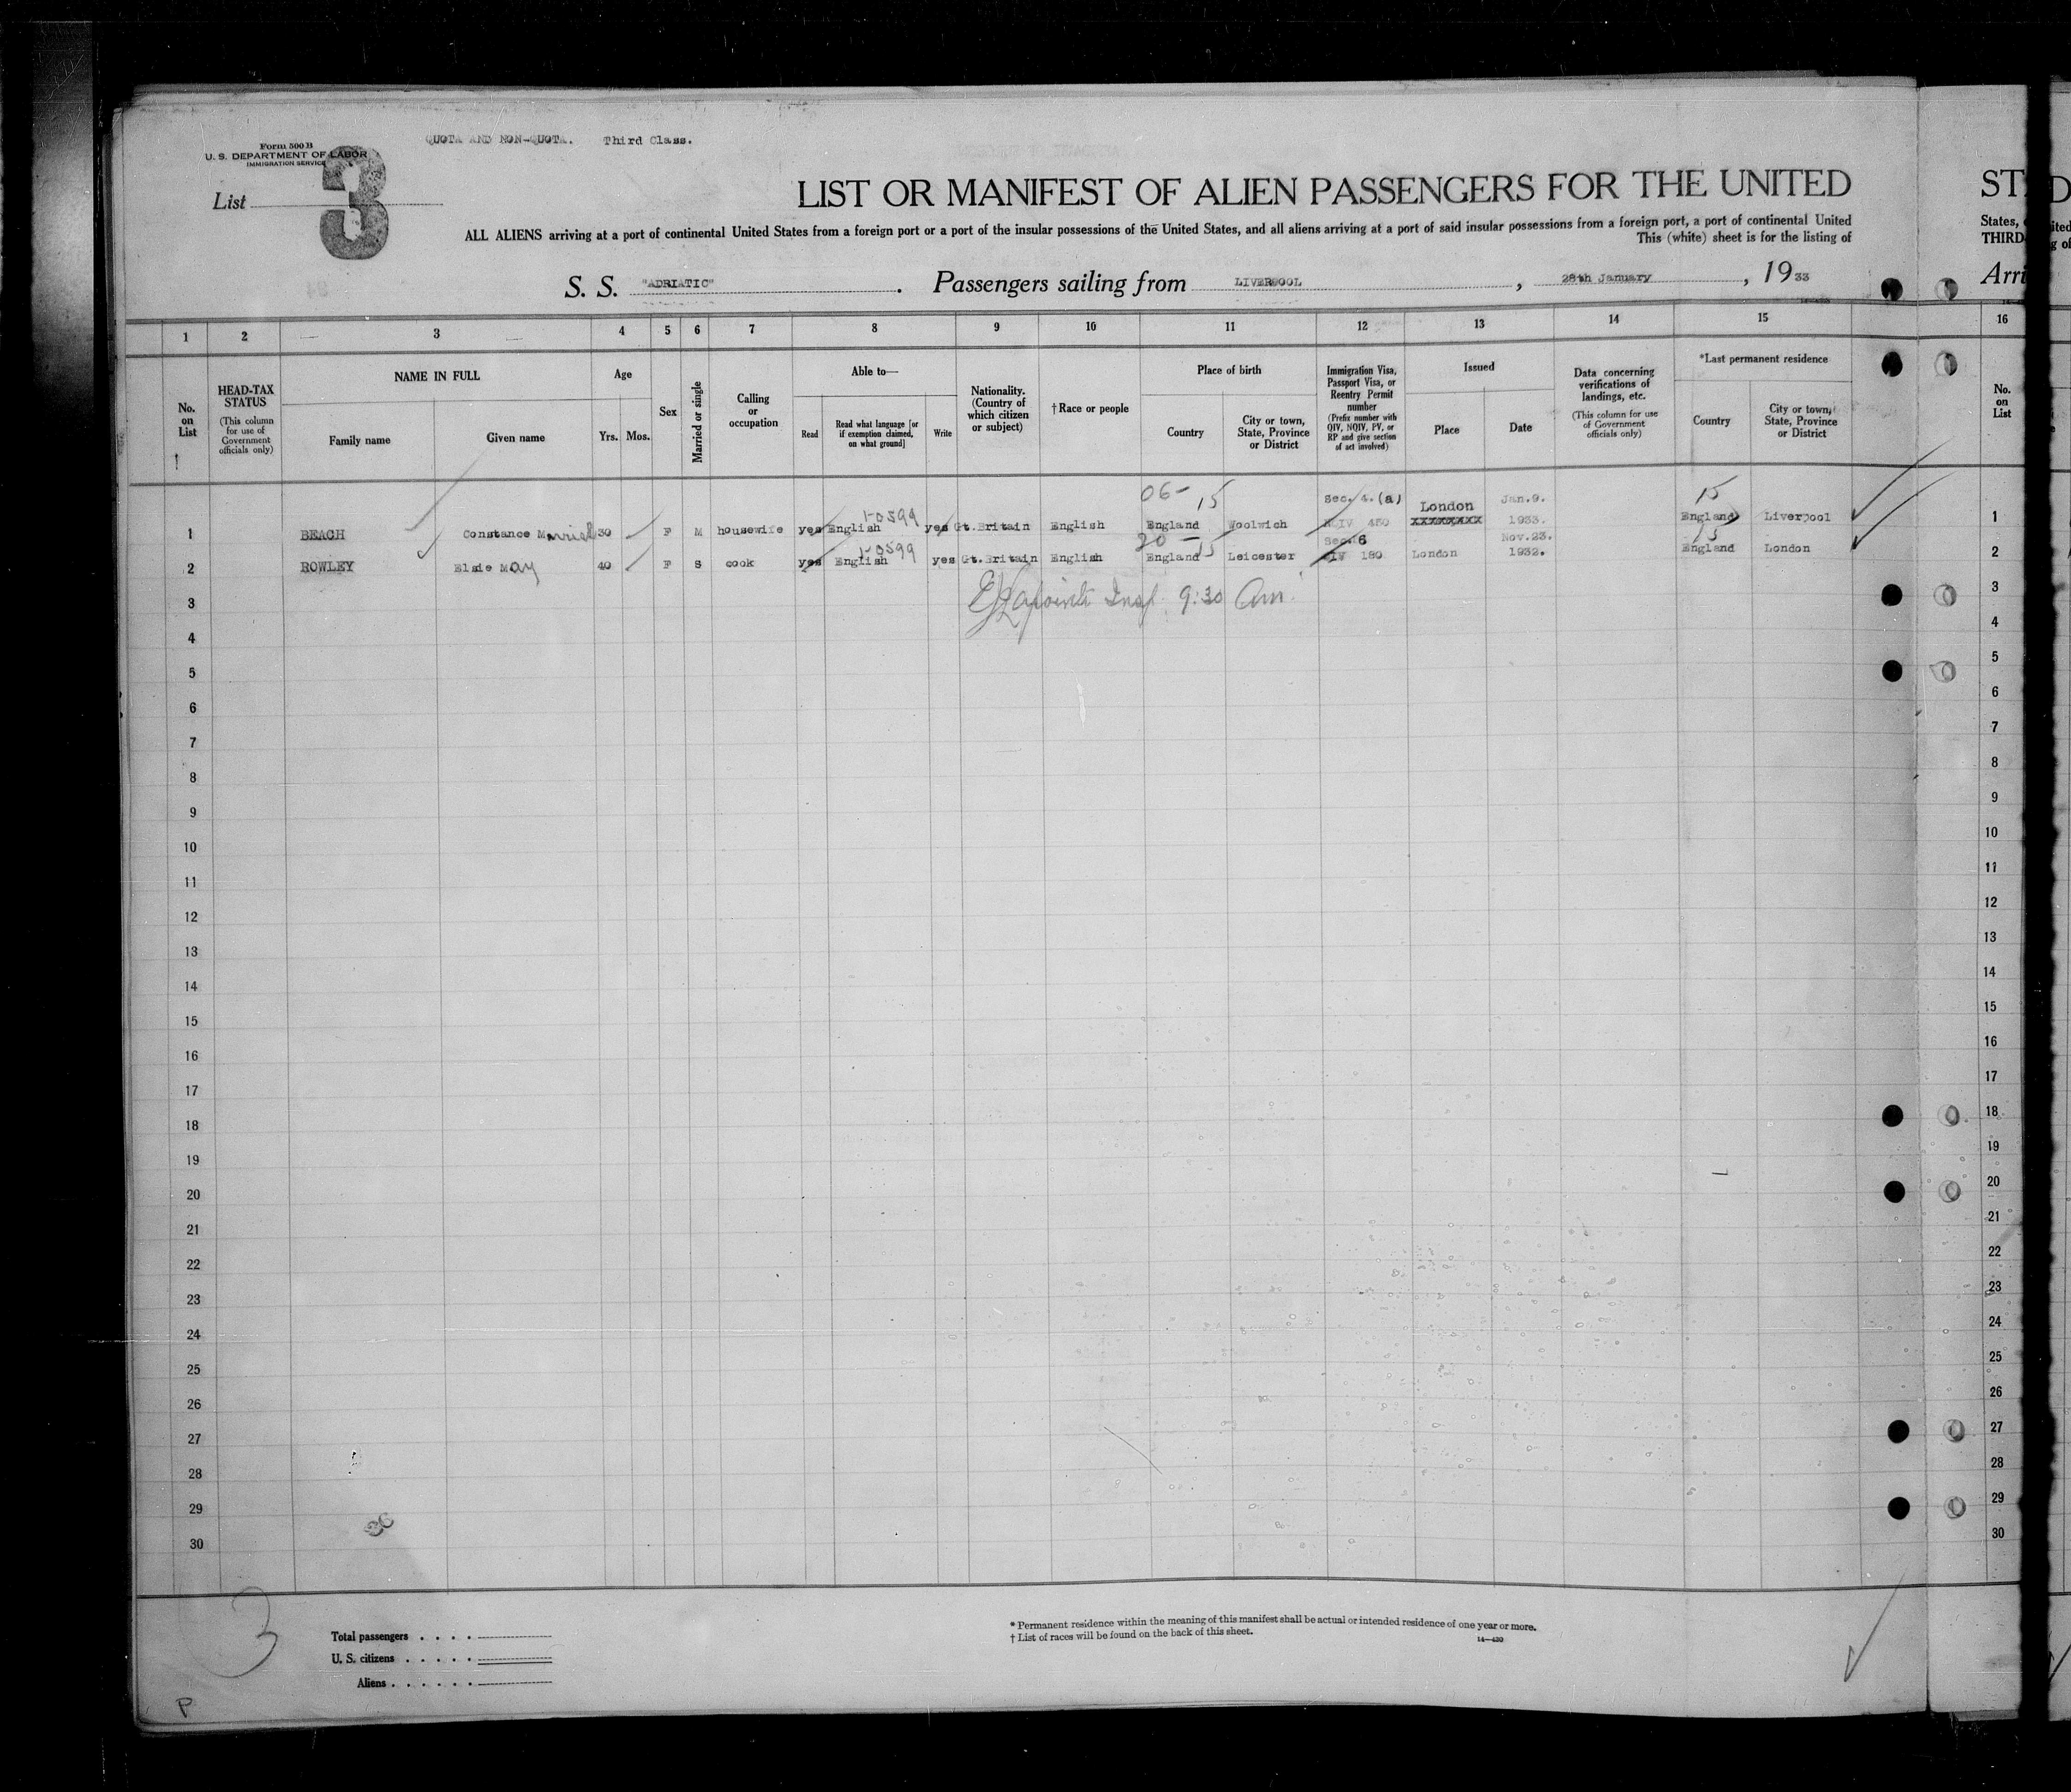 QUOTA AND NON-QUOTA. Third Class.
Form 500 B
U. S. DEPARTMENT OF LABOR
IMMIGRATION SERVICE
List 3
LIST OR MANIFEST OF ALIEN PASSENGERS FOR THE UNITED
ALL ALIENS arriving at a port of continental United States from a foreign port or a port of the insular possessions of the United States, and all aliens arriving at a port of said insular possessions from a foreign port, a port of continental United
This (white) sheet is for the listing of
S. S. "ADRIATIC". Passengers sailing from LIVERPOOL, 28th January, 1933
1 2 3 4 5 6 7 8 9 10 11 12 13 14 15
No. on List
HEAD-TAX STATUS
(This column for use of Government officials only)
NAME IN FULL
Family name
Given name
Age
Yrs. Mos.
Sex
Married or single
Calling or occupation
Able to—
Read
Read what language [or if exemption claimed, on what ground]
Write
Nationality. (Country of which citizen or subject)
†Race or people
Place of birth
Country
City or town, State, Province or District
Immigration Visa, Passport Visa, or Reentry Permit number
(Prefix number with QIV, NQIV, PV, or RP and give section of act involved)
Issued
Place
Date
Data concerning verifications of landings, etc.
(This column for use of Government officials only)
*Last permanent residence
Country
City or town, State, Province or District
06- 15 Sec. 4.(a) London Jan.9. 15
1-0599
1 BEACH Constance 30 F M housewife yes English yes Gt.Britain English England Woolwich NQIV 450 XXXXXXXX 1933. England Liverpool
20-15 Sec. 6 Nov.23. 15
1-0599
2 ROWLEY Elsie May 40 F S cook yes English yes Gt.Britain English England Leicester QIV 180 London 1932. England London
3 Insp. 9:30 am
4
5
6
7
8
9
10
11
12
13
14
15
16
17
18
19
20
21
22
23
24
25
26
27
28
29
30
3
Total passengers
U. S. citizens
Aliens
* Permanent residence within the meaning of this manifest shall be actual or intended residence of one year or more.
† List of races will be found on the back of this sheet.
14—430
P
ST
States,
THIRD
Arri
16
No. on List
1
2
3
4
5
6
7
8
9
10
11
12
13
14
15
16
17
18
19
20
21
22
23
24
25
26
27
28
29
30